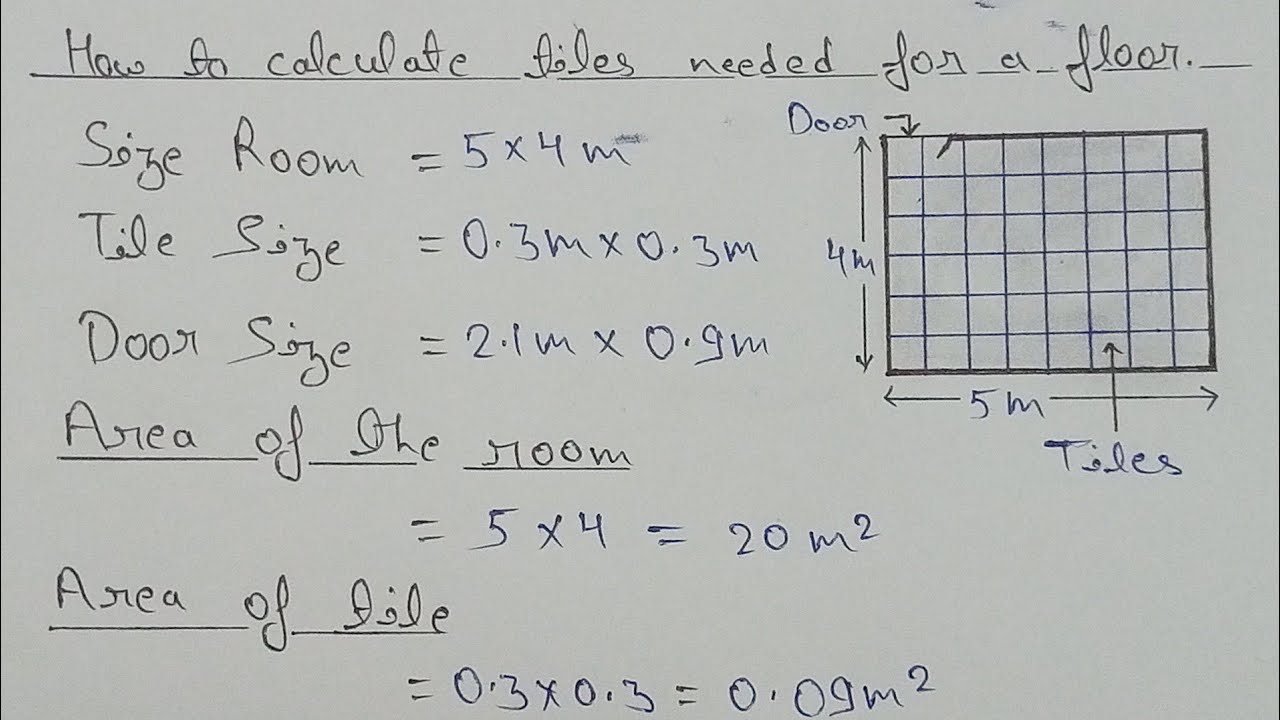 How to calculate tiles needed for a floor.
Door
Size Room = 5 x 4 m
Tile Size = 0.3m x 0.3m
4m
Door Size = 2.1m x 0.9m
5 m
Tiles
Area of the room
= 5 x 4 = 20 m²
Area of tile
= 0.3 x 0.3 = 0.09m²